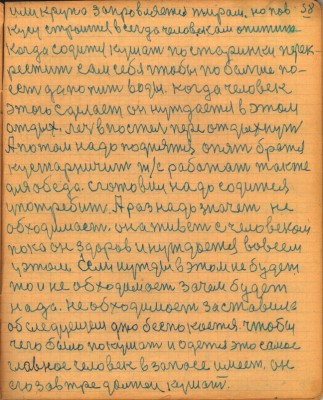 или круто заправляется жирам, но пов 58
кусу строится всегда человекам опятита
Когда содится кушат постаринки перек-
рестит сам себя чтобы по болше по-
ест да попит воды. когда человек
этого сделает он нуждается в этом
отдых. лех в постел пере отдыхнут
А потом надо поднятся опят братся
кустарничит и/с работат также
для обеда. сготовили надо содится
употребит. А раз надо значет не
обходимаст. она живет с человеком
пока он здоров и нуждается во всем
у этом. Если нужды в этом не будет
то и не обходимаст зачем будет
надо. Не обходимост заставила
об следующем дню беспокоется. чтобы
чего было покушат и одется это самое
главное человек в запасе имеет. он
его завтре должен кушат.